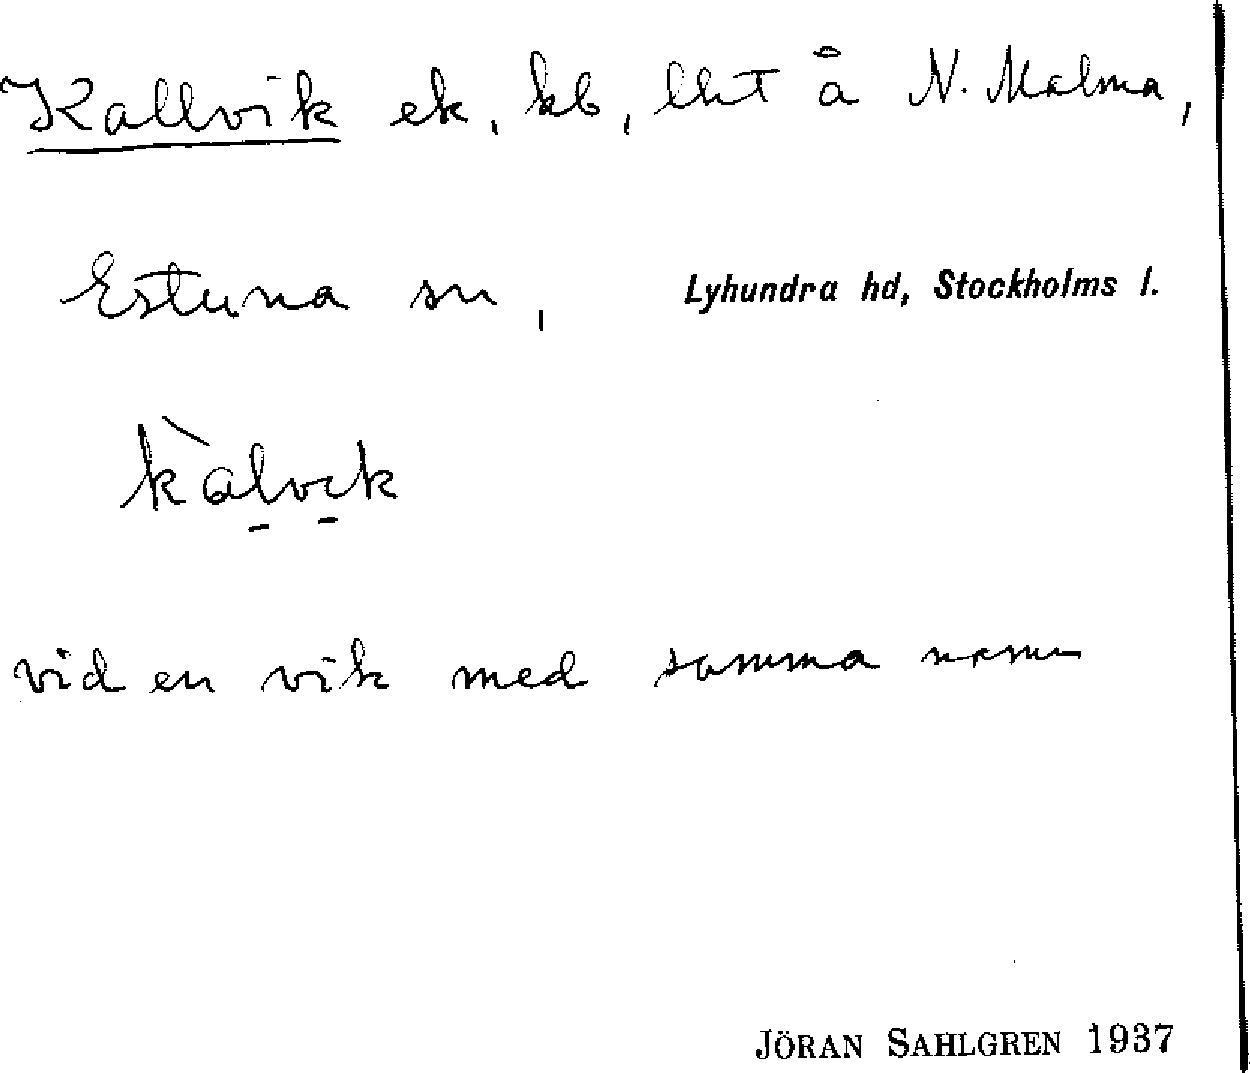 Kallvik ek, kb, lht å N. Malma,
Estuna sn, Lyhundra hd, Stockholms l.
kàl̠vı̠k
vid en vik med samma namn
JÖRAN SAHLGREN 1937